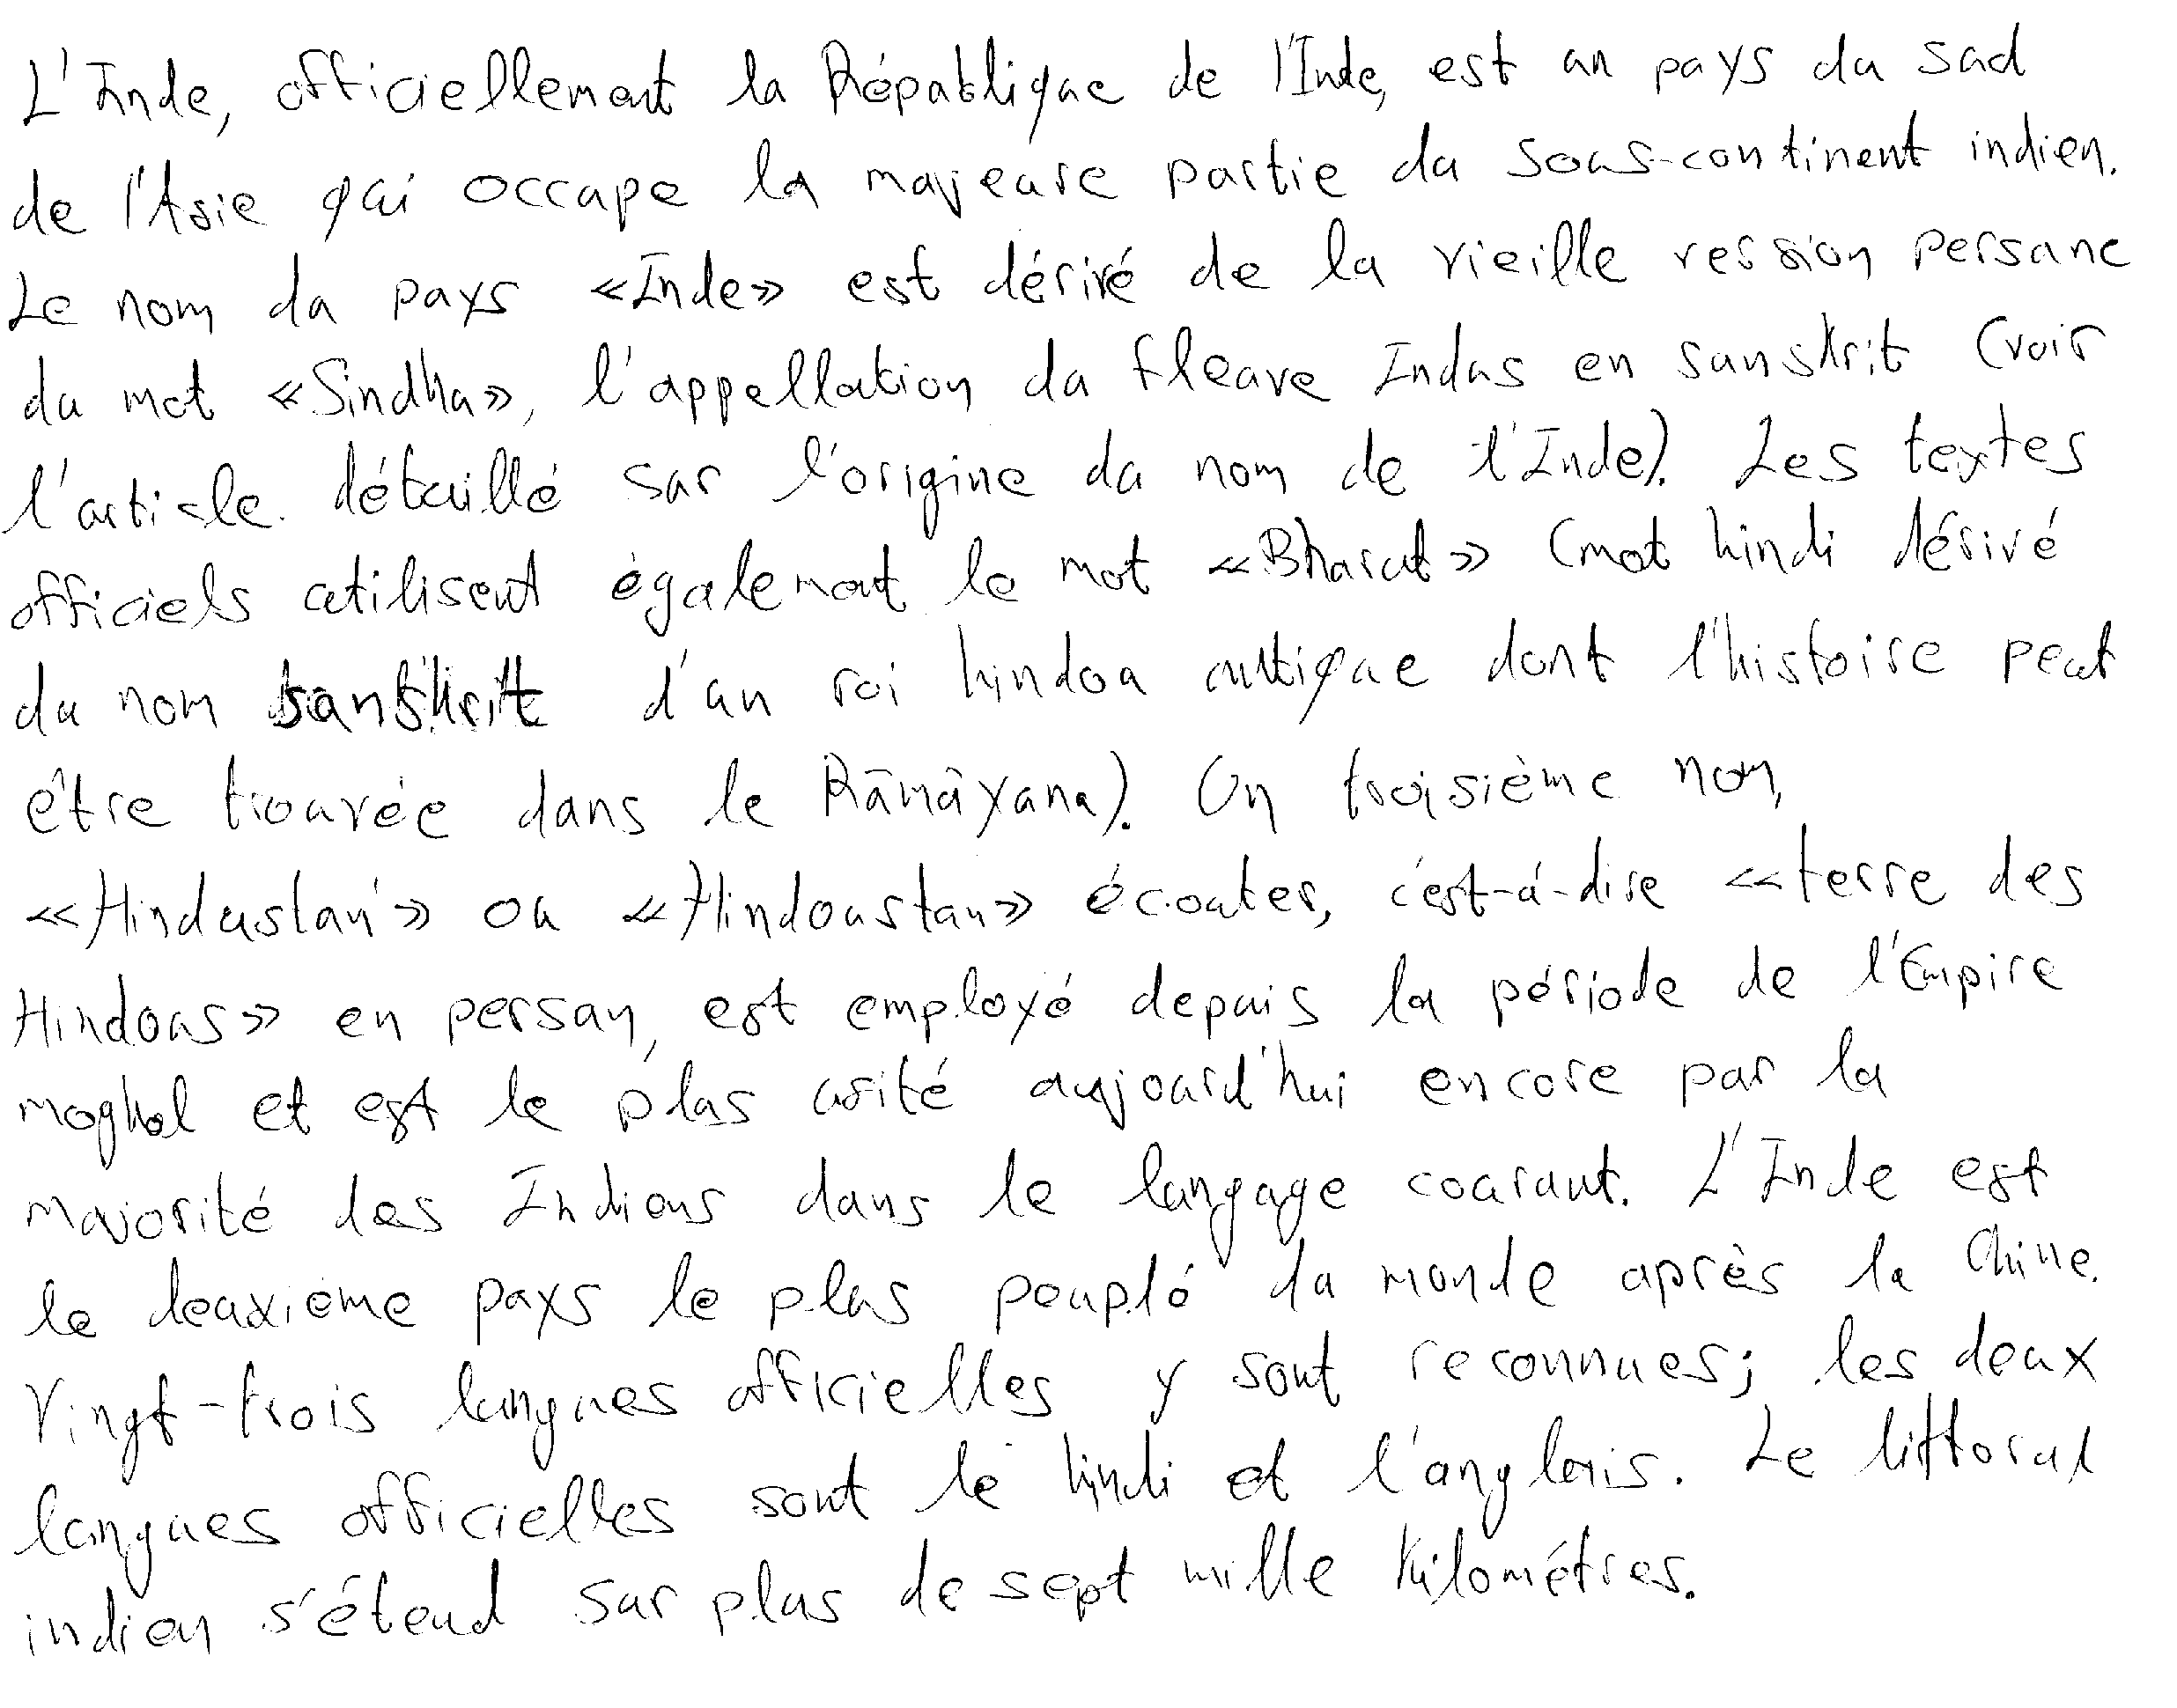 L'Inde, officiellement la République de l'Inde, est un pays du sud
de l'Asie qui occupe la majeure partie du sous-continent indien.
Le nom du pays «Inde» est dérivé de la vieille version persane
du mot «Sindhu», l'appellation du fleuve Indus en sanskrit (voir
l'article détaillé sur l'origine du nom de l'Inde). Les textes
officiels utilisent également le mot «Bharat» (mot hindi dérivé
du nom sanskrit d'un roi hindou antique dont l'histoire peut
être trouvée dans le Rāmāyana). Un troisième nom,
«Hindustan» ou «Hindoustan» écouter, c'est-à-dire «terre des
Hindous» en persan, est employé depuis la période de l'Empire
moghol et est le plus usité aujourd'hui encore par la
majorité des Indiens dans le langage courant. L'Inde est
le deuxième pays le plus peuplé du monde après la Chine.
Vingt-trois langues officielles y sont reconnues; les deux
langues officielles sont le hindi et l'anglais. Le littoral
indien s'étend sur plus de sept mille kilomètres.